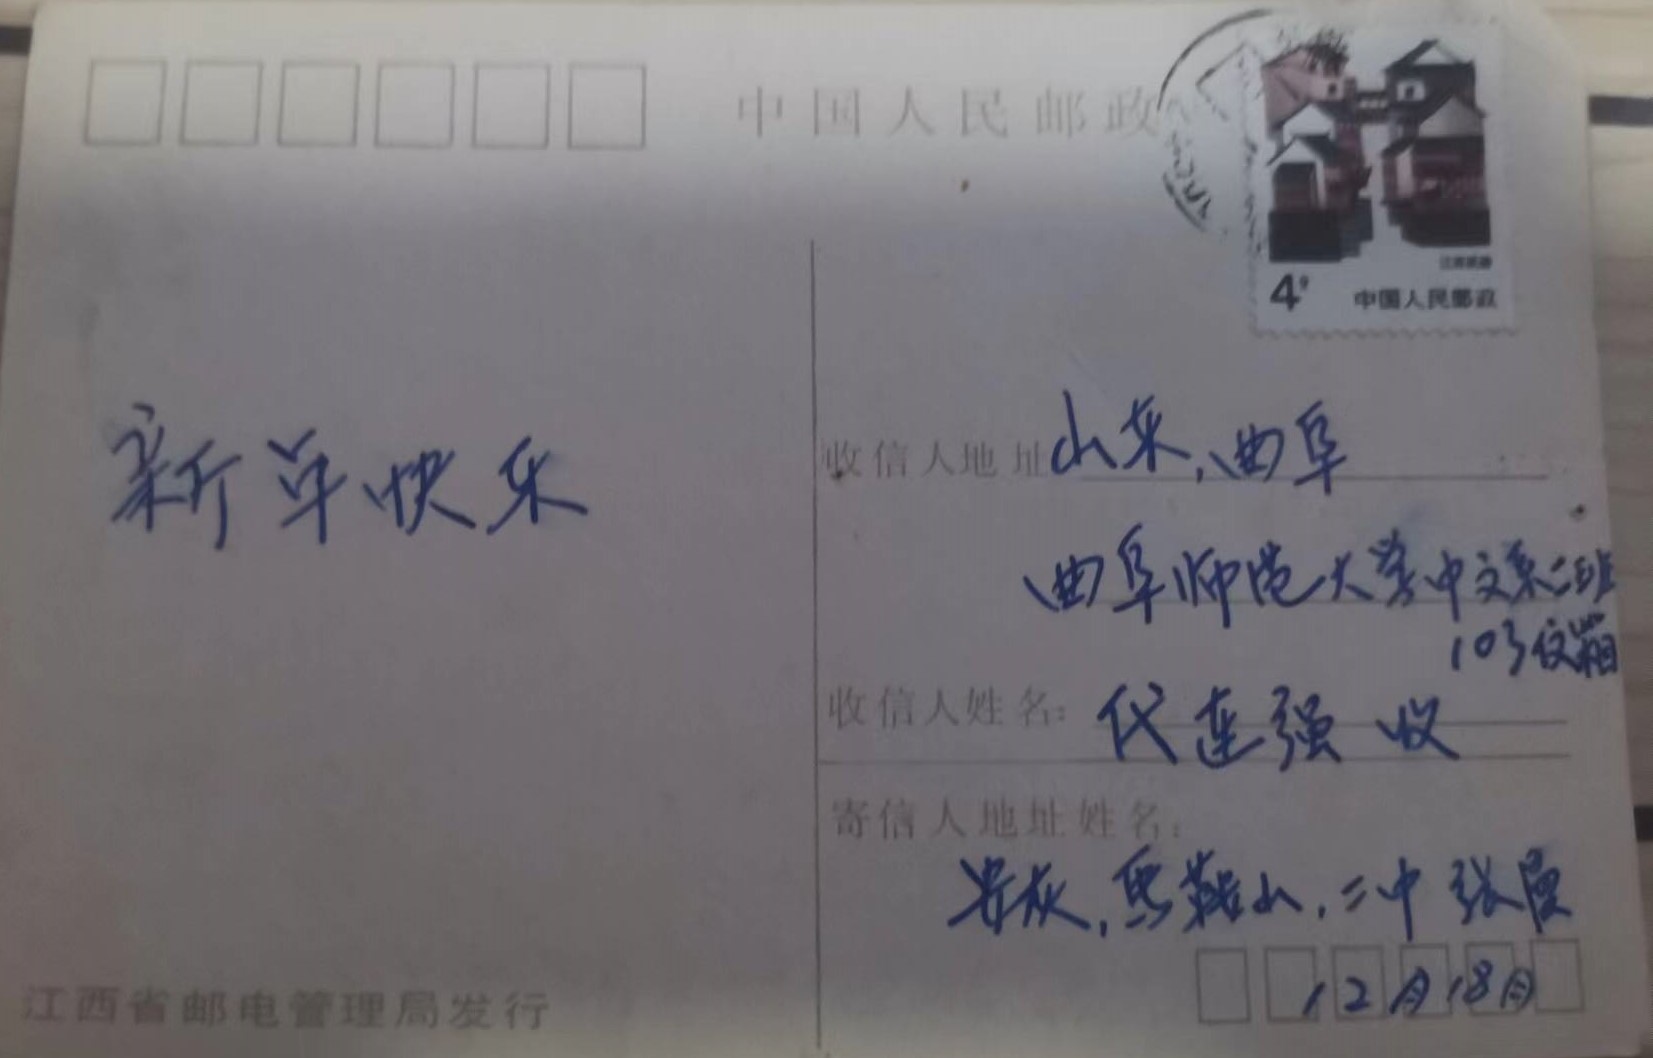 中国人民邮政
江苏民居
4分 中国人民邮政
新年快乐
收信人地址 山东,曲阜
曲阜师范大学中文系二班
10号信箱
收信人姓名: 代连强 收
寄信人地址姓名:
安灰,马鞍山,二中 张
12月18日
江西省邮电管理局发行